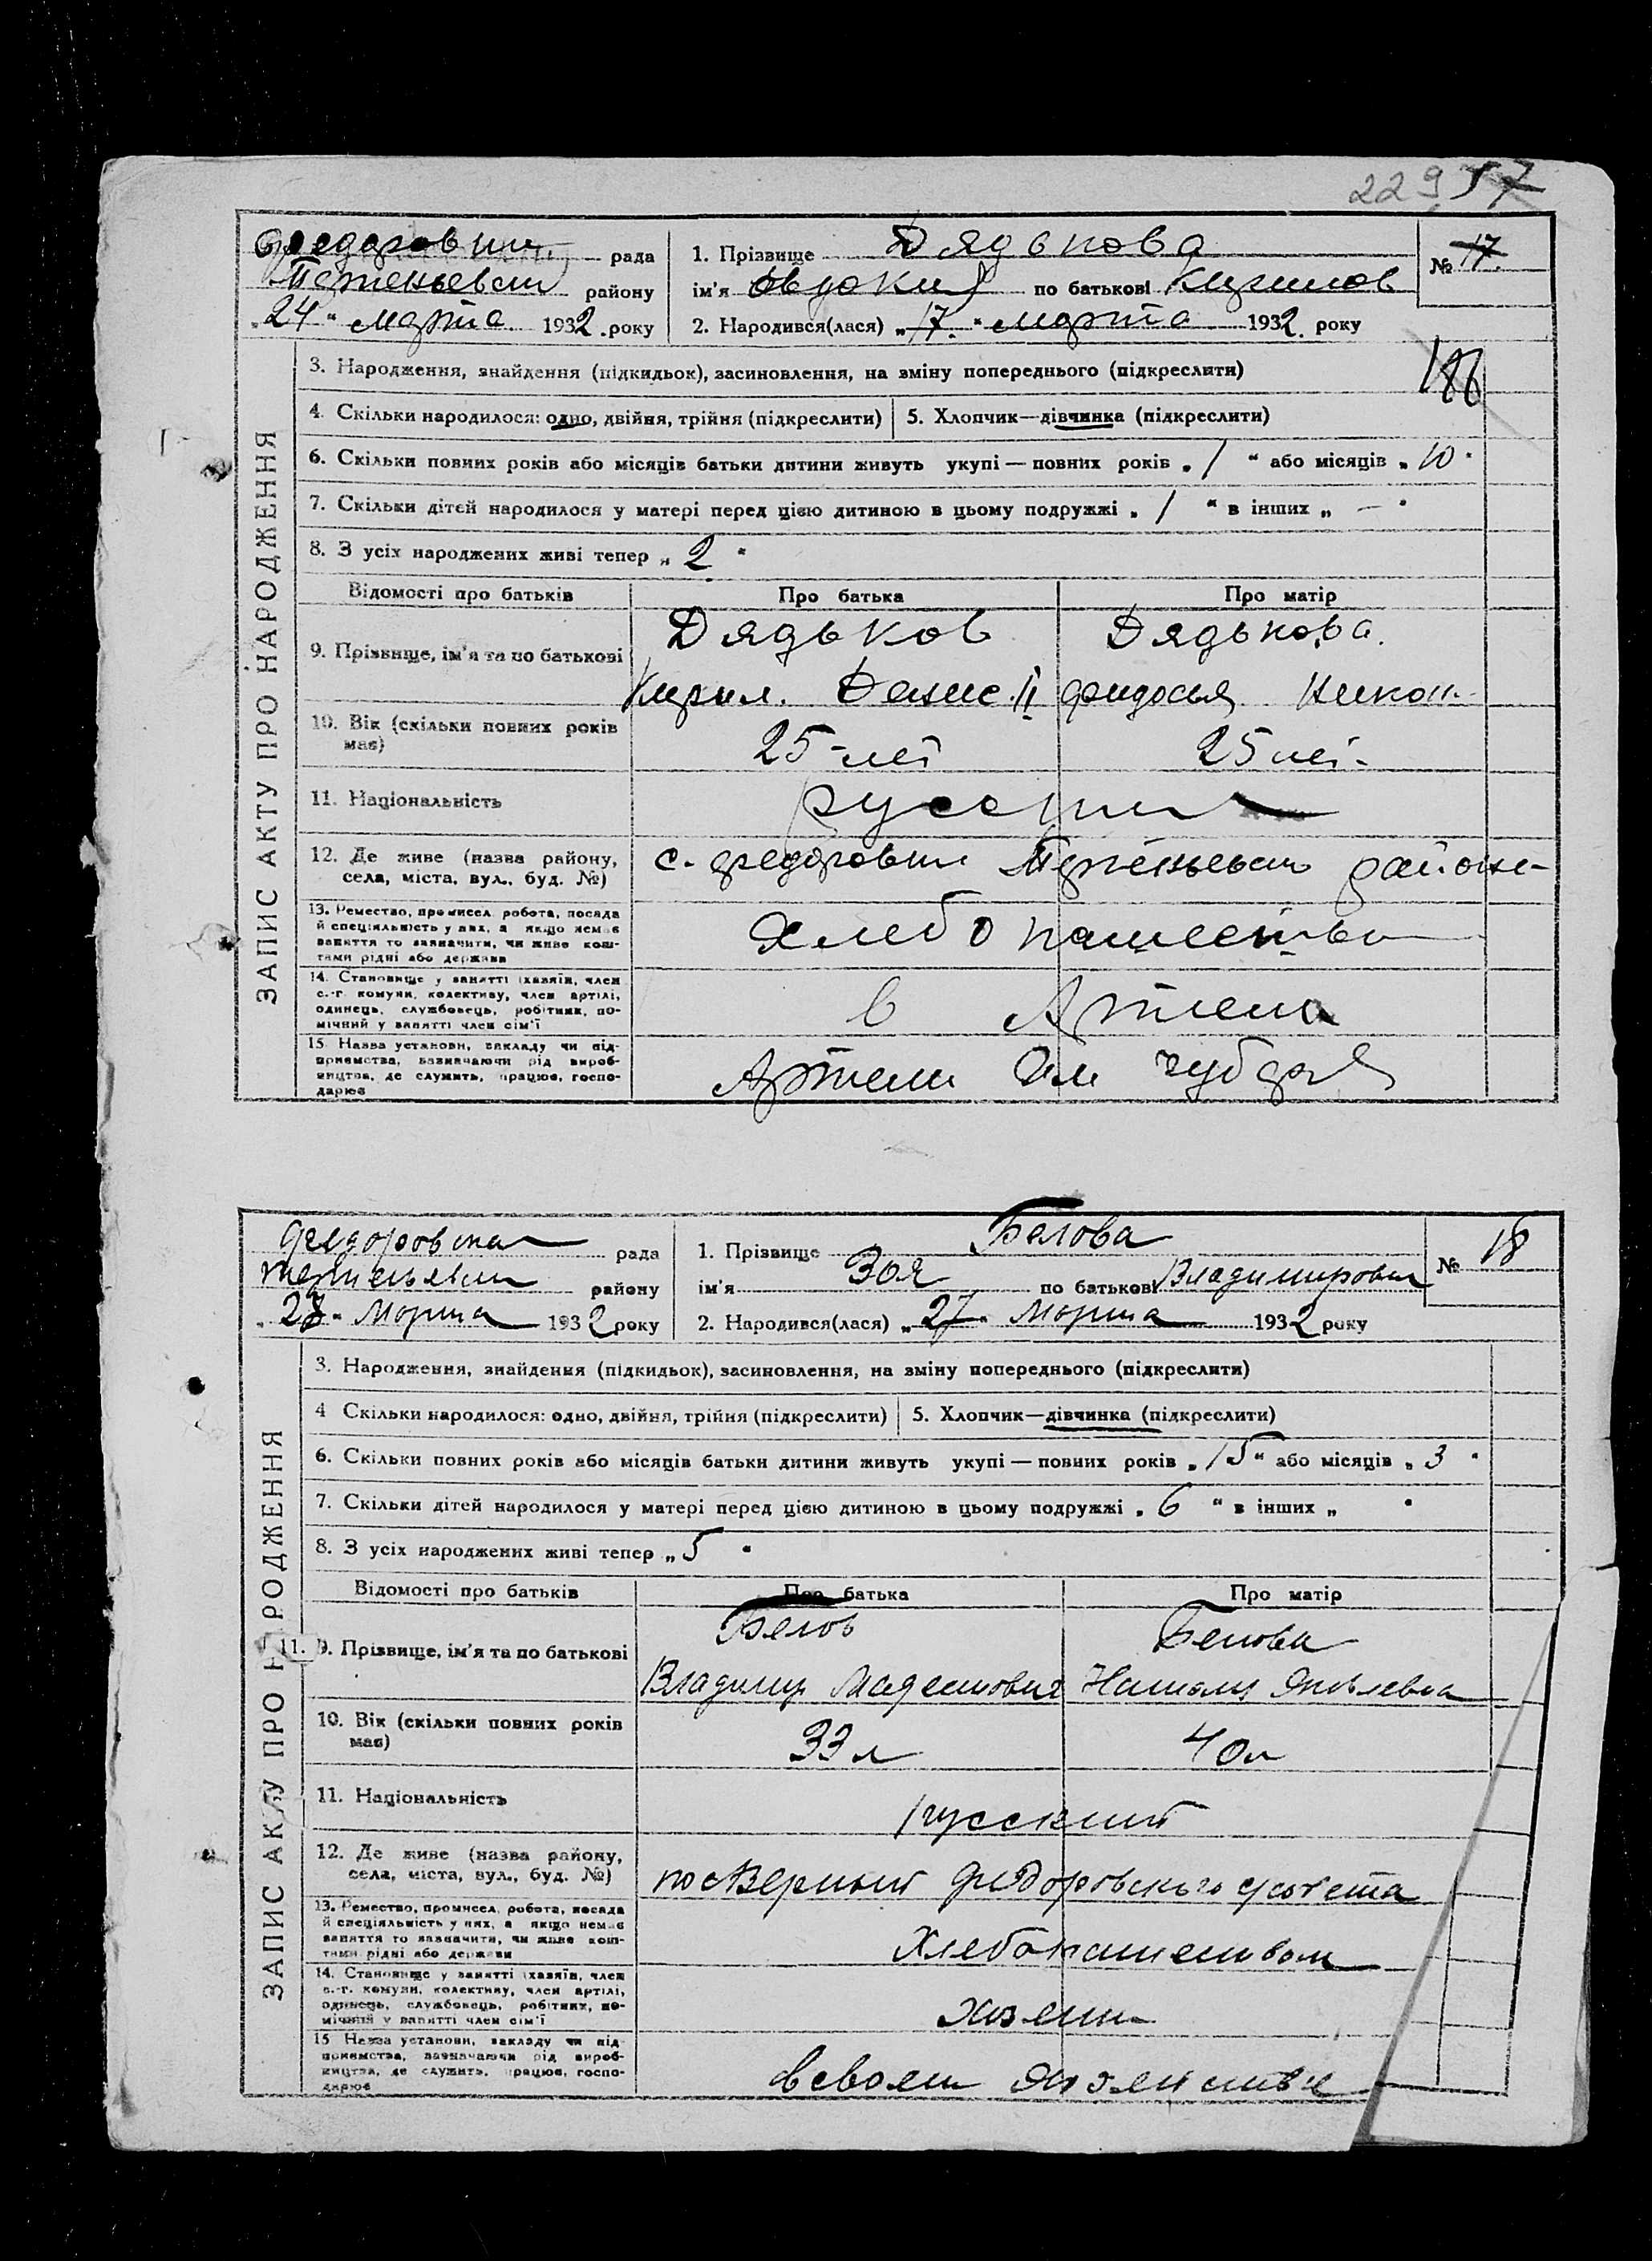 229 57
Федоровск рада
района району
"24" Марта 1932 року
1. Прізвище Дядькова
ім'я Овдокия по батькові Кирилов
2. Народився(лася) „17" Марта 1932. року
№ 17.
186
ЗАПИС АКТУ ПРО НАРОДЖЕННЯ
3. Народження, знайдення (підкидьок), засиновлення, на зміну попереднього (підкреслити)
4. Скільки народилося: одно, двійня, трійня (підкреслити) 5. Хлопчик—дівчинка (підкреслити)
6. Скільки повних років або місяців батьки дитини живуть укупі — повних років „1" або місяців „10"
7. Скільки дітей народилося у матері перед цією дитиною в цьому подружжі „1" в інших „—"
8. З усіх народжених живі тепер „2"
Відомості про батьків Про батька Про матір
9. Прізвище, ім'я та по батькові Дядьков Дядькова.
Кирил. Денис. II Фидосья Никон-
10. Вік (скільки повних років має) 25-лет 25 лет-
11. Національність русские
12. Де живе (назва району, села, міста, вул., буд. №) с. Федоровки района
13. Ремество, промисел, робота, посада й спеціяльність у них, а якщо немає заняття то зазначити, чи живе коштами рідні або держави Хлебопашество
14. Становище у занятті (хазяїн, член с.-г. комуни, колективу, член артілі, одинець, службовець, робітник, помічний у занятті член сім'ї в Артели
15. Назва установи, закладу чи підприємства, зазначаючи рід виробництва, де служить, працює, господарює Артели Им Чубаря
Федоровская рада
району
"28" Марта 1932 року
1. Прізвище Белова
ім'я Зоя по батькові Владимировн
2. Народився(лася) „27" Марта 1932 року
№ 18
ЗАПИС АКТУ ПРО НАРОДЖЕННЯ
3. Народження, знайдення (підкидьок), засиновлення, на зміну попереднього (підкреслити)
4 Скільки народилося: одно, двійня, трійня (підкреслити) 5. Хлопчик—дівчинка (підкреслити)
6. Скільки повних років або місяців батьки дитини живуть укупі — повних років „15" або місяців „3"
7. Скільки дітей народилося у матері перед цією дитиною в цьому подружжі „6" в інших „ "
8. З усіх народжених живі тепер „5"
Відомості про батьків Про батька Про матір
11. 9. Прізвище, ім'я та по батькові Белов Белова
Владимир Наталия Яковлевна
10. Вік (скільки повних років має) 33 л 40 л
11. Національність русский
12. Де живе (назва району, села, міста, вул., буд. №) пос Верный Федоровского с/совета
13. Ремество, промисел, робота, посада й спеціяльність у них, а якщо немає заняття то зазначити, чи живе коштами рідні або держави Хлебопашеством
14. Становище у занятті (хазяїн, член с.-г. комуни, колективу, член артілі, одинець, службовець, робітник, помічний у занятті член сім'ї хозяин
15 Назва установи, закладу чи підприємства, зазначаючи рід виробництва, де служить, працює, господарює в своем хозяйстве